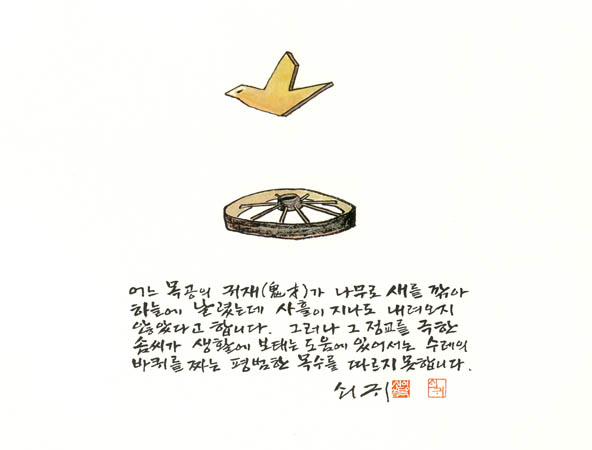 어느 목공의 귀재(鬼才)가 나무로 새를 깎아
하늘에 날렸는데 사흘이 지나도 내려오지
않았다고 합니다. 그러나 그 정교를 극한
솜씨가 생활에 보태는 도움에 있어서는 수레의
바퀴를 짜는 평범한 목수를 따르지 못합니다.
쇠귀